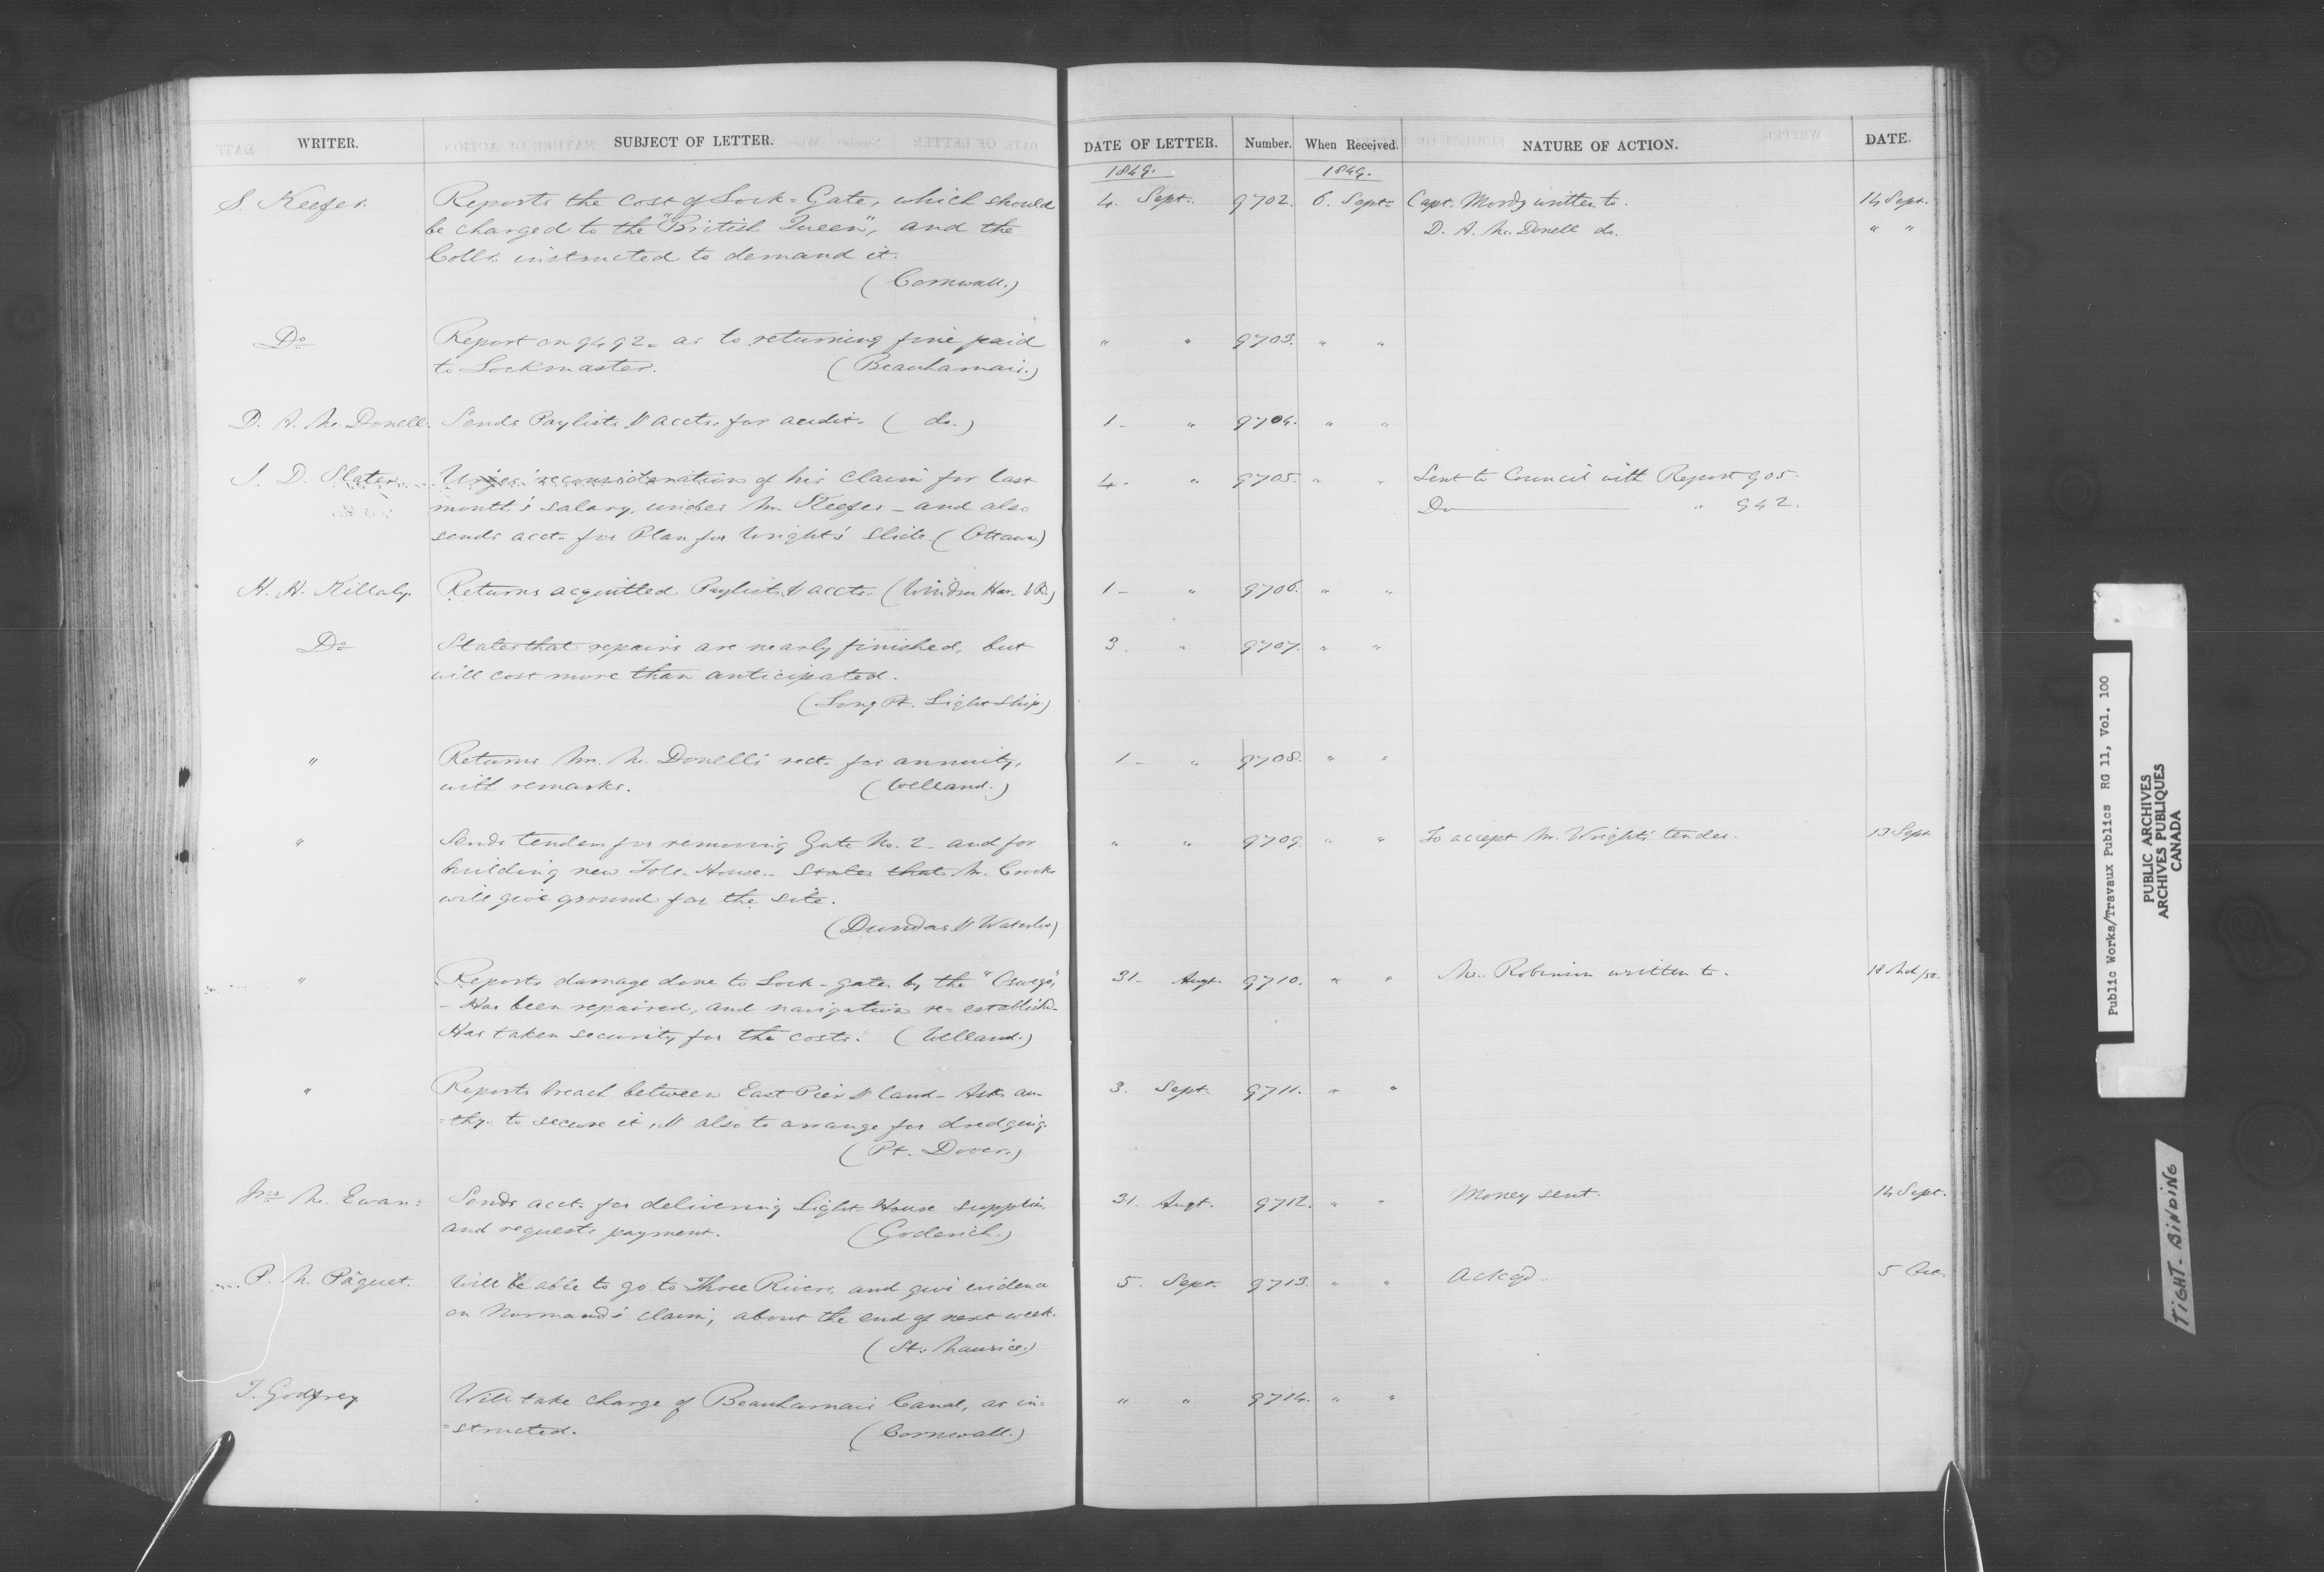 WRITER. SUBJECT OF LETTER. DATE OF LETTER. Number. When Received. NATURE OF ACTION. DATE.
1849. 1849.
S. Keefer. Reports the cost of Lock-Gate, which should 4. Sept. 9702. 6. Sept. Capt. Moody written to. 14 Sept.
be charged to the "British Queen", and the D. A. Mc. Donell do. " "
Collr. instructed to demand it.
(Cornwall.)
Do Report on 9492. as to returning fine paid " " 9703. " "
to Lockmaster. (Beauharnais.)
D. A. Mc. Donell. Sends Paylists & accts. for audit. ( do.) 1 - " 9704. " "
J. D. Slater. Urges reconsideration of his claim for last 4 - " 9705. " " Sent to Council with Report 905.
month's salary, under Mr. Keefer - and also Do " 942.
sends acct. for Plan for Wright's Slide. (Ottawa)
H. H. Killaly. Returns acquitted Paylists & accts. (Windsor Har. & Rd.) 1 - " 9706. " "
Do States that repairs are nearly finished, but 3. " 9707. " "
will cost more than anticipated.
(Long Pt. Light Ship)
" Returns Mr. Mc. Donell's rect. for annuity, 1 - " 9708. " "
with remarks. (Welland.)
" Sends tenders for removing Gate No. 2. and for " " 9709. " " To accept Mr. Wright's tender. 13 Sept
building new Toll-House. States that Mr. Crooks
will give ground for the site.
(Dundas & Waterloo)
" Reports damage done to Lock-gates by the "Oswego," 31 - Augt. 9710. " " Mr. Robinson written to. 18 Mch/50.
- Has been repaired, and navigation re-establishd.
Has taken security for the costs. (Welland.)
" Reports breach between East Pier & land - Asks au- 3. Sept. 9711. " "
=thy. to secure it, & also to arrange for dredging.
(Pt. Dover.)
Jno Mc. Ewan: Sends acct. for delivering Light-House supplies, 31. Augt. 9712. " " Money sent. 14 Sept.
and requests payment. (Goderich.)
P. N. Pâquet. Will be able to go to Three Rivers, and give evidence 5. Sept. 9713. " " Ackgd. 5 Oct.
on Normand's claim, about the end of next week.
(St. Maurice.)
T. Godfrey Will take charge of Beauharnais Canal, as in- " " 9714. " "
=structed. (Cornwall.)
Public Works/Travaux Publics RG 11, Vol. 100
PUBLIC ARCHIVES
ARCHIVES PUBLIQUES
CANADA
TIGHT BINDING